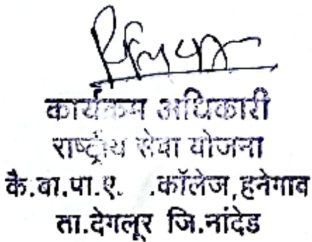 कार्यक्रम अधिकारी
राष्ट्रीय सेवा योजना
कै.बा.पा.ए. .कॉलेज,हनेगाव
ता.देगलूर जि.नांदेड